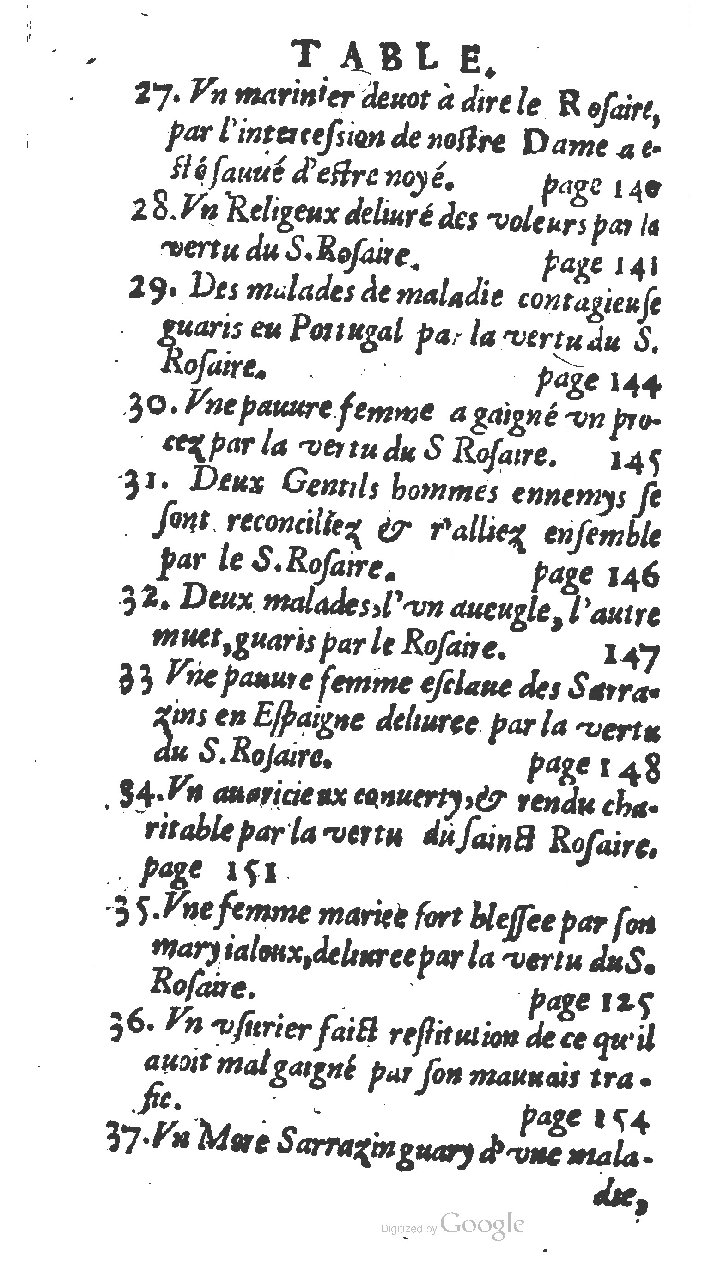 TABLE.
27. Vn marinier deuot à dire le Rosaire,
par l'intercession de nostre Dame a e-
sté sauué d'estre noyé. page 140
28. Vn Religeux deliuré des voleurs par la
vertu du S. Rosaire. page 141
29. Des malades de maladie contagieuse
guaris eu Portugal par la vertu du S.
Rosaire. page 144
30. Vne pauure femme a gaigné vn pro-
cez par la vertu du S Rosaire. 145
31. Deux Gentils hommes ennemys se
sont reconciliez & r'alliez ensemble
par le S. Rosaire. page 146
32. Deux malades, l'vn aueugle, l'autre
muet, guaris par le Rosaire. 147
33 Vne pauure femme esclaue des Sarra-
zins en Espaigne deliuree par la vertu
du S. Rosaire. page 148
34. Vn auaricieux conuerty, & rendu cha-
ritable par la vertu du sainct Rosaire.
page 151
35. Vne femme mariee fort blessee par son
mary ialoux, deliuree par la vertu du S.
Rosaire. page 125
36. Vn vsurier faict restitution de ce qu'il
auoit mal gaigné par son mauuais tra-
fic. page 154
37. Vn More Sarrazin guary d'vne mala-
die,
Digitized by Google